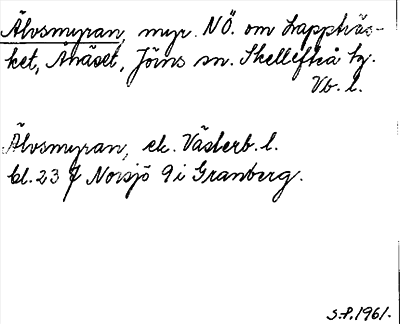 Älvsmyran, myr NÖ. om Lappträs-
ket, Ånäset, Jörns sn. Skellefteå tg.
Vb. l.
Älvsmyran, ek. Västerb. l.
bl. 23 J Norsjö 9 i Granberg.
S.P. 1961.